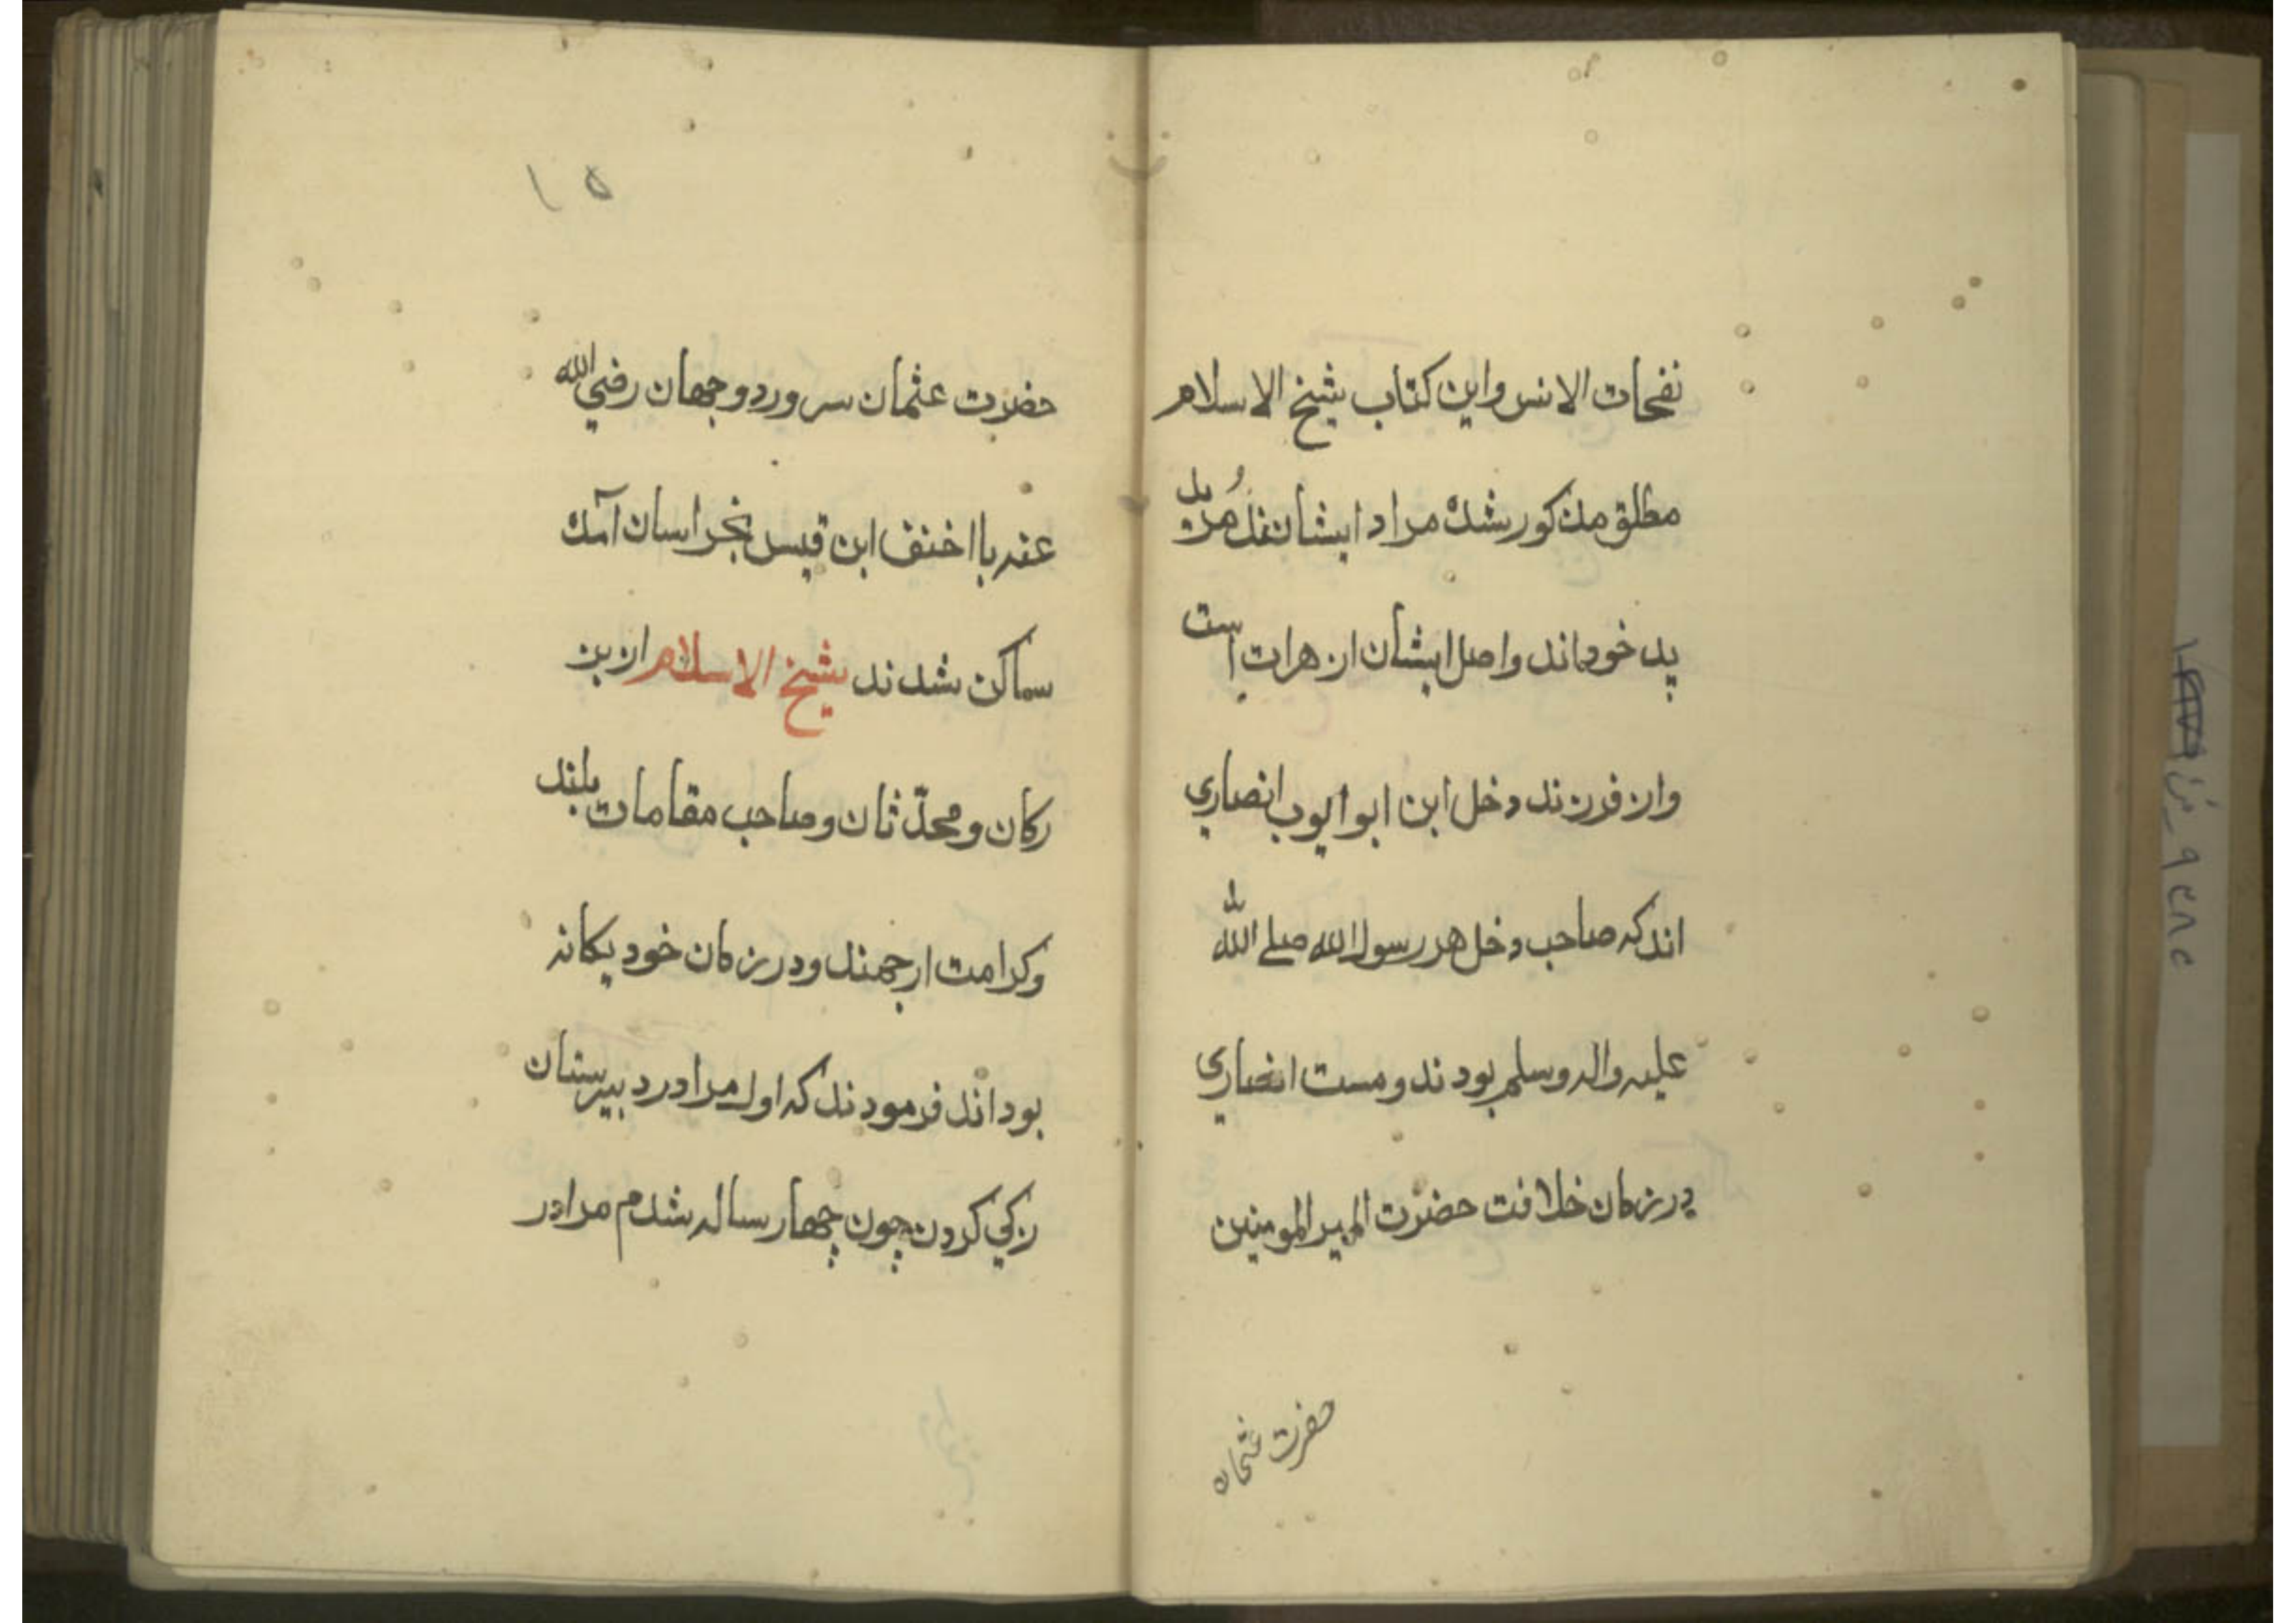 نفحات الانس واین کتاب شیخ الاسلام
مطلق مذکور شده مراد ایشانند مُرید
پدر خوداند واصل ایشان از هرات است
واز فرزند دخل ابن ابو ایوب انصاری
اند که صاحب دخل هر رسول الله صلی الله
علیه واله وسلم بودند ومست انصاری
در زمان خلافت حضرت امیر المومنین
حضرت عثمان
۱۵
حضرت عثمان سرور دو جهان رضی الله
عنه با اخنف ابن قیس بخراسان آمده
ساکن شدند شیخ الاسلام از بن
رکان و محدّثان و صاحب مقامات بلند
وکرامت ارجمند و در زمان خود یکانه
بوداند فرمودند که اول مرا در دبیرستان
زکی کردن چون چهار ساله شدم مرا در